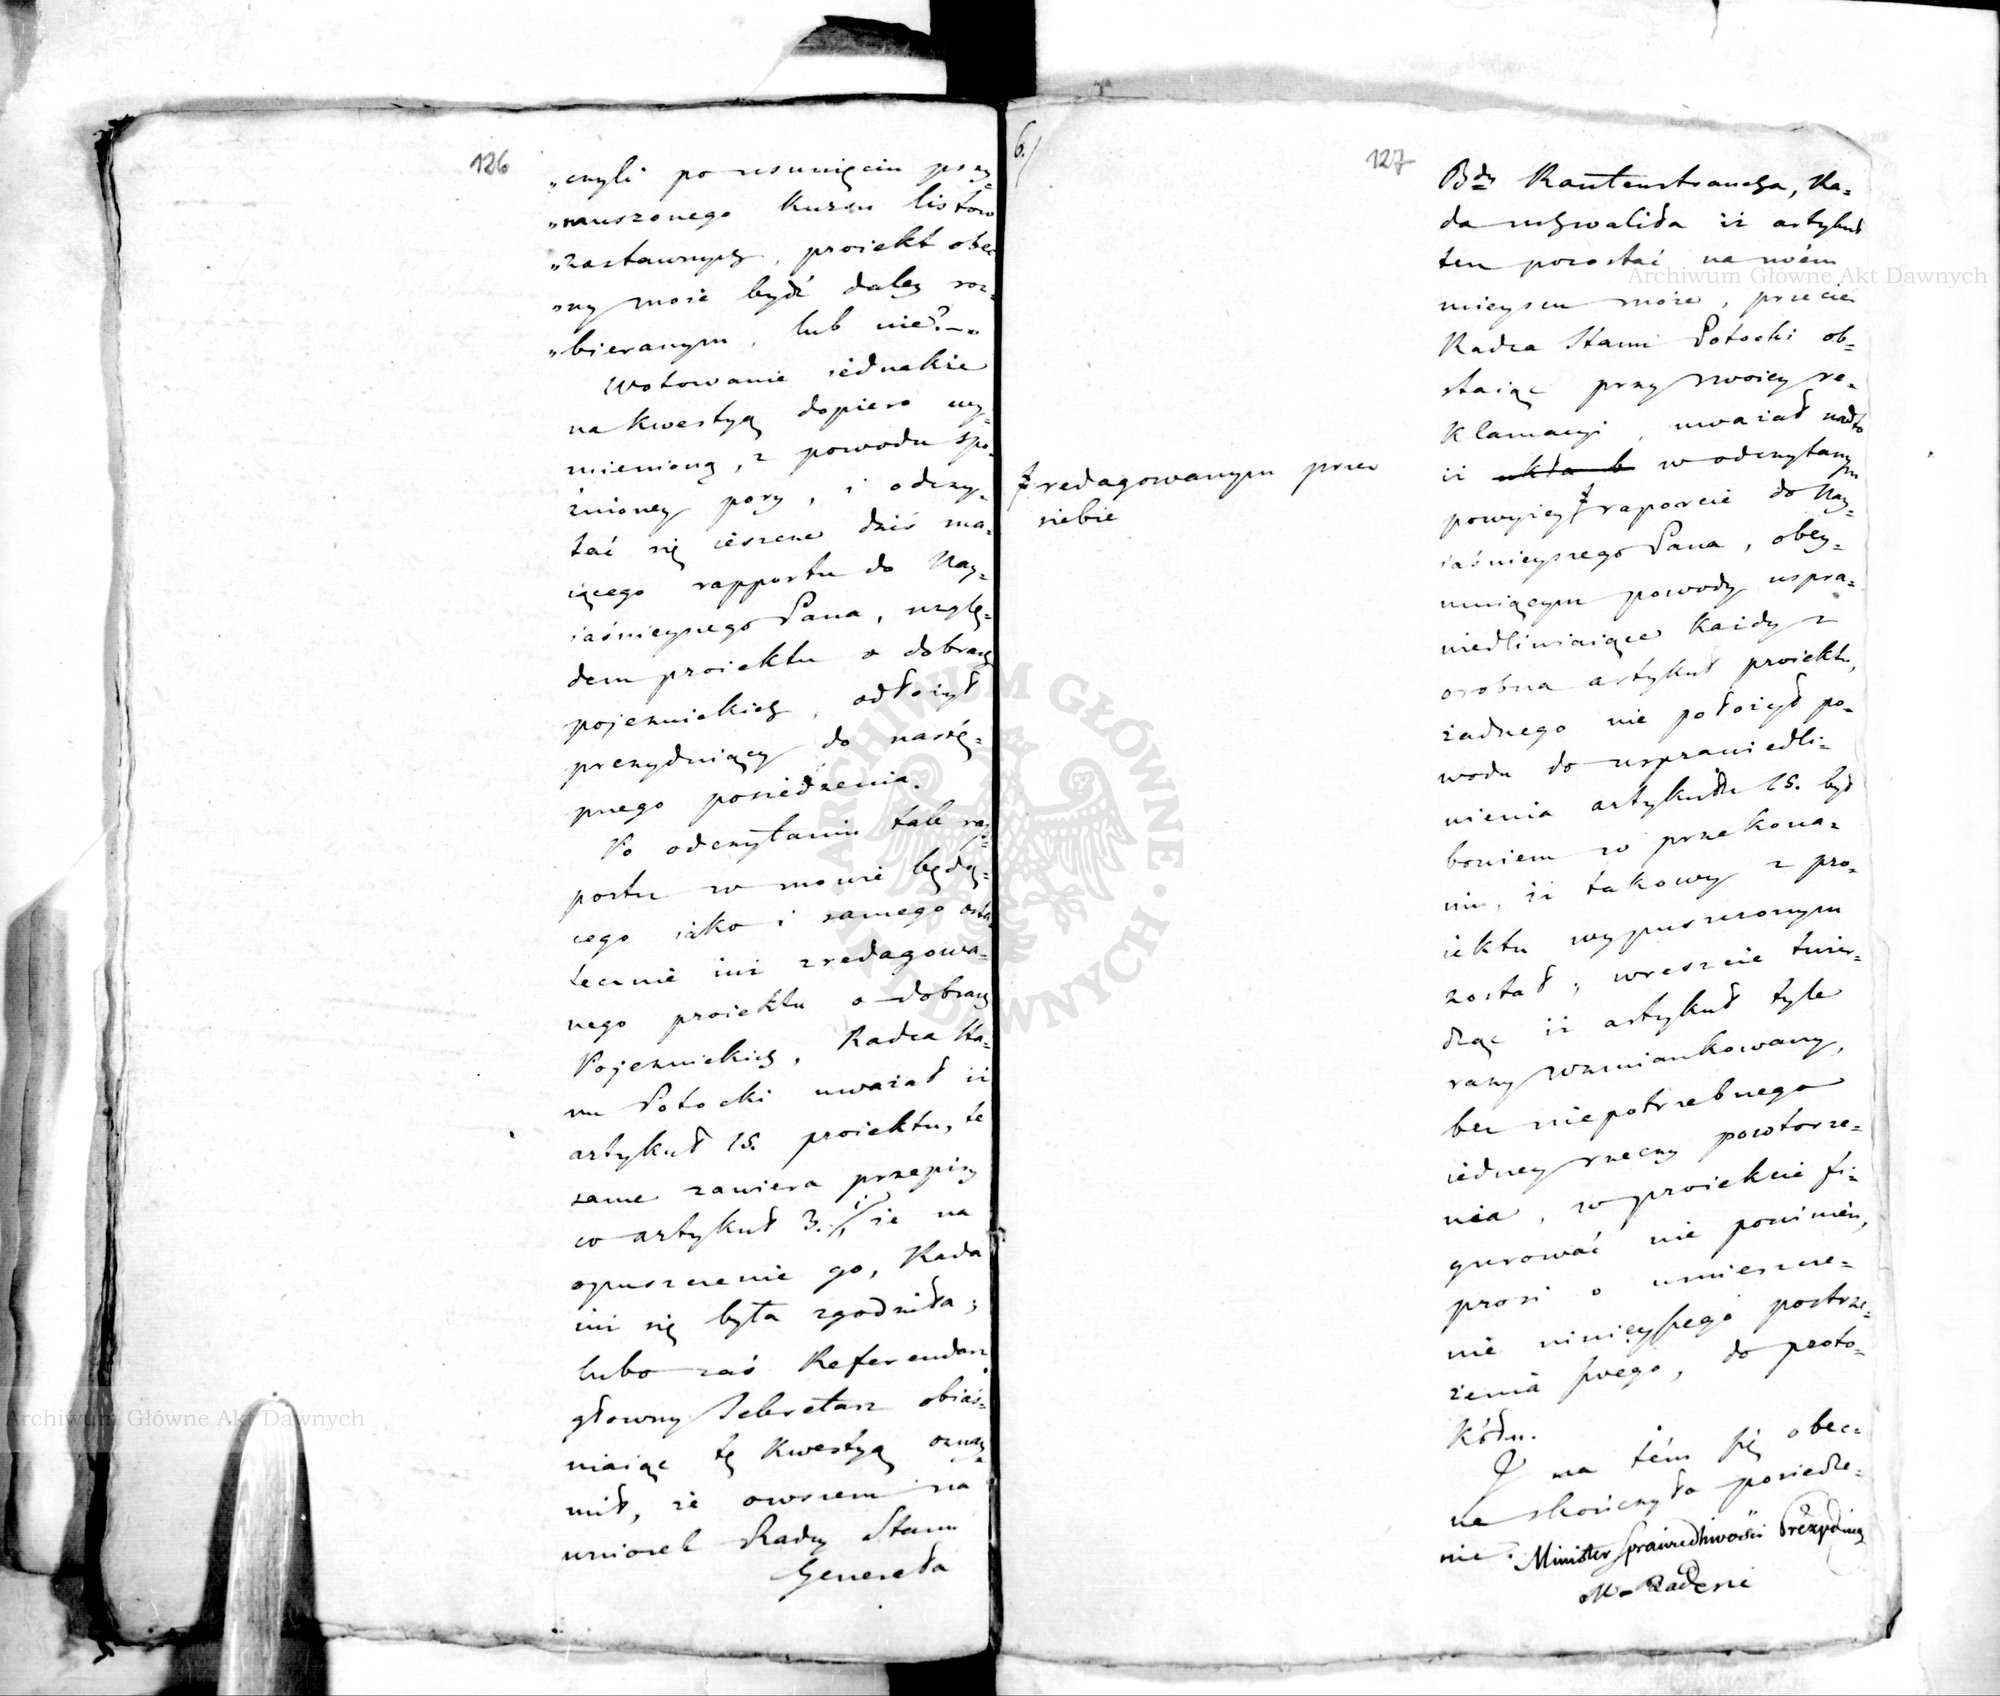 126
„czyli po usunięciu przy„
„muszonego kursu listow
„zastawnych, proiekt obec
„ny może bydź daley roz„
„bieranym, lub nie?—
Wotowanie iednakże
na kwestyą dopiero wy„
mienioną, z powodu spo„
źnioney pory, i odczy„
tać się ieszcze dziś ma„
iącego rapportu do Nay„
iaśnieyszego Pana, wzglę„
dem proiektu o dobrach
pojezuickich, odłożył
prezyduiący do nastę„
pnego posiedzenia.
Po odczytaniu tak rap„
portu w mowie będą„
cego iako i samego osta
tecznie iuż zredagowa„
nego proiektu o dobrach
Pojezuickich, Radca Sta„
nu Potocki uważał iż
artykuł 15. proiektu, te
same zawiera przepisy
co artykuł 3. i że na
opuszczenie go, Rada
iuż się była zgodziła;
lubo zaś Referendarz
głowny Sekretarz obiaś„
niaiąc tę kwestyą oznay„
mił, że owszem na
wniosek Radcy Stanu
Generała
6.
127
Bdy Rautenstraucha, Ra„
da uchwaliła iż artykuł
ten pozostać na swóiem
mieyscu może, przecież
Radca Stanu Potocki ob„
staiąc przy swoiey re„
klamacyi, uważał nadto
iż w odczytanym
powyżey ‡ raporcie do Nay„
iaśnieyszego Pana, obey„
muiącym powody uspra„
wiedliwiaiące każdy z
osobna artykuł proiektu,
żadnego nie położył po„
wodu do usprawiedli„
wienia artykułu 15. był
bowiem w przekona„
niu, iż takowy z pro„
iektu wypuszczonym
został; wreszcie twier„
dząc iż artykuł tyle
razy wzmiankowany,
bez niepotrzebnego
iedney rzeczy powtorze„
nia, w proiekcie fi„
gurować nie powinien,
prosi o umieszcze„
nie ninieyszego postrze„
żenia swego, do proto„
kółu.
I na tém się obec„
ne skończyło posiedze„
nie. Minister Sprawiedliwości Prezyduiący
M. Badeni
‡ redagowanym przez
siebie
Archiwum Główne Akt Dawnych
Archiwum Główne Akt Dawnych
ARCHIWUM GŁÓWNE • AKT DAWNYCH •